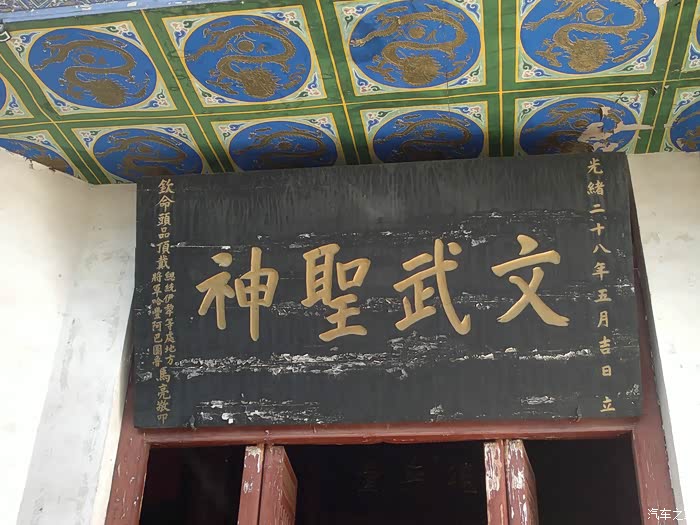 光緒二十八年五月吉日立
文武聖神
欽命頭品頂戴
總統伊犂等處地方
將軍哈豐阿巴圖魯
馬亮敬叩
汽车之